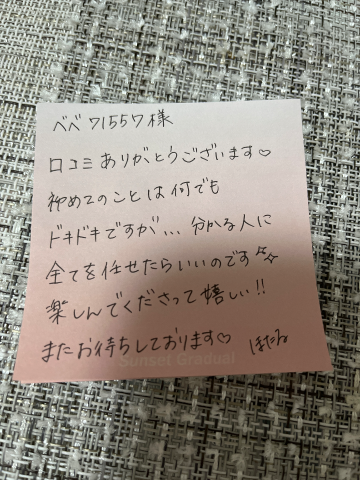 ベベ71557様
口コミありがとうございます♡
初めてのことは何でも
ドキドキですが... 分かる人に
全てを任せたらいいのです✨
楽しんでくださって嬉しい!!
またお待ちしております♡
ほたる
Sunset Gradual